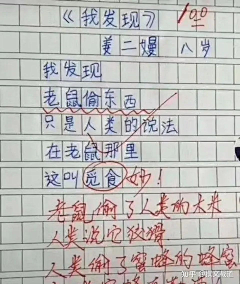 《我发现》 100
姜二嫚 八岁
我发现
老鼠偷东西
只是人类的说法
在老鼠那里
这叫觅食 妙!
老鼠偷了人类的大米
人类说它狡猾
人类偷了蜜蜂的蜂蜜